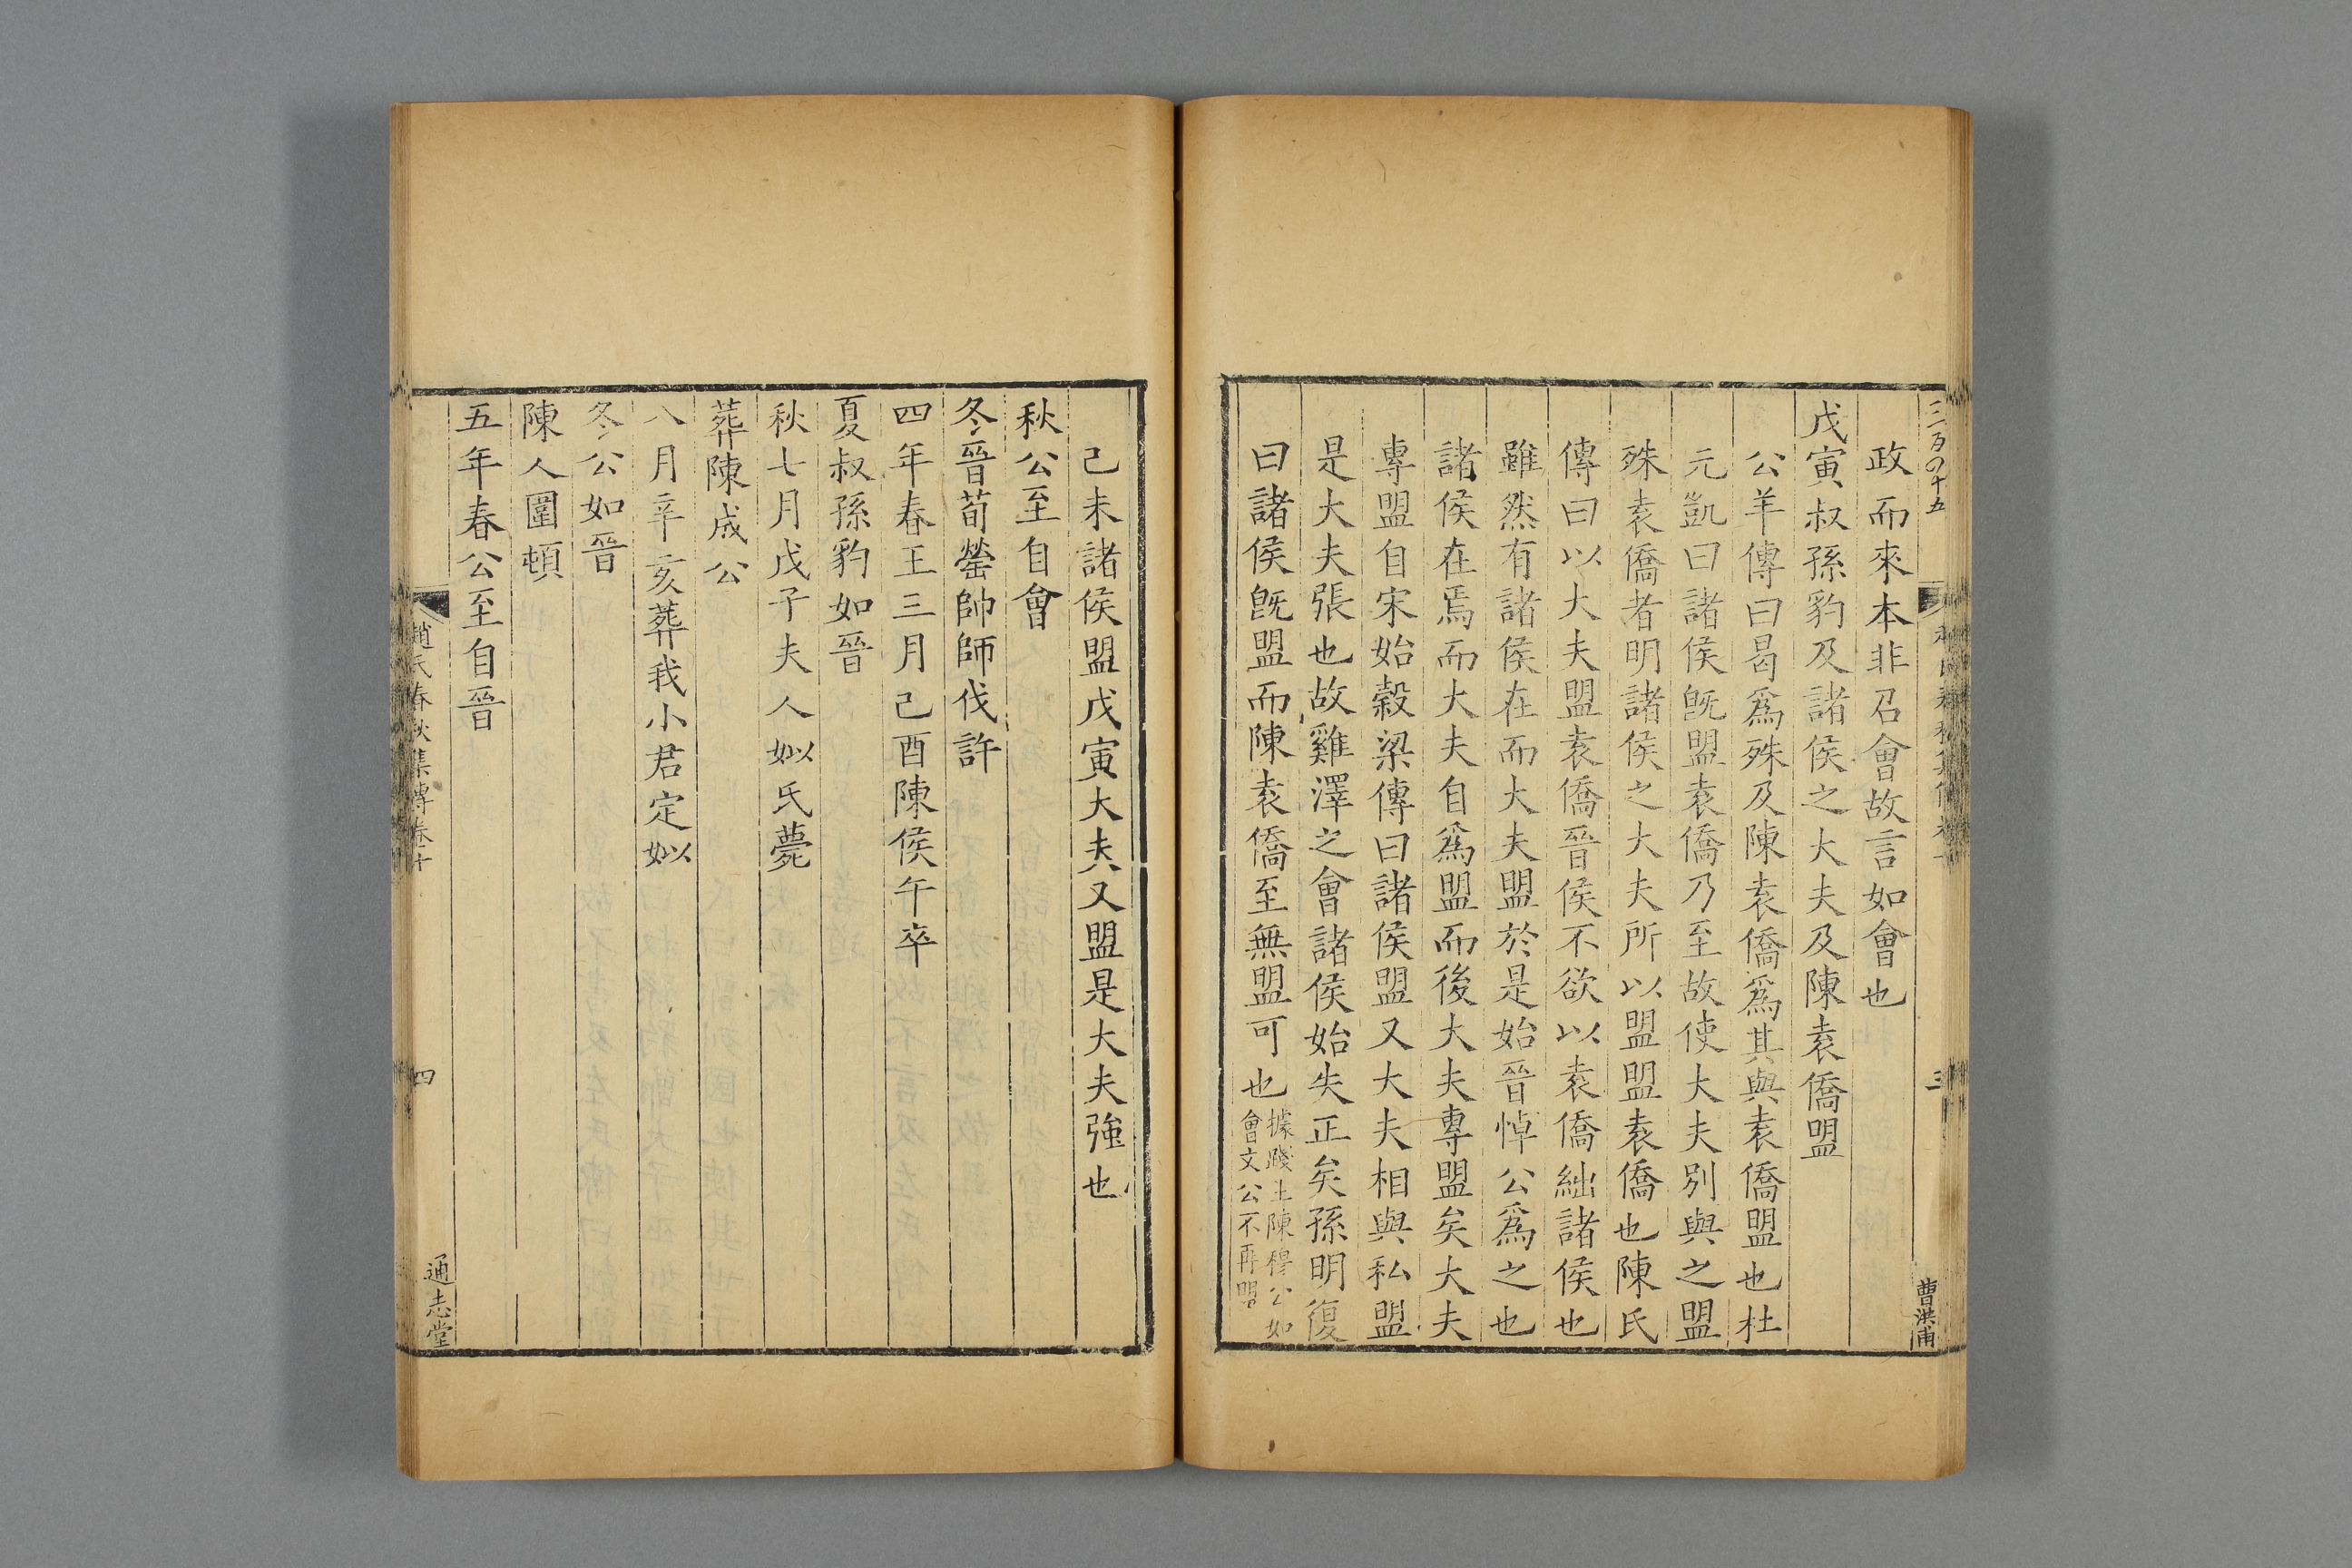 三百四十五
政而來本非召會故言如會也
戊寅叔孫豹及諸侯之大夫及陳袁僑盟
公羊傳曰曷爲殊及陳袁僑爲其與袁僑盟也杜
元凱曰諸侯旣盟袁僑乃至故使大夫別與之盟
殊袁僑者明諸侯之大夫所以盟盟袁僑也陳氏
傳曰以大夫盟袁僑晉侯不欲以袁僑絀諸侯也
雖然有諸侯在而大夫盟於是始晉悼公爲之也
諸侯在焉而大夫自爲盟而後大夫專盟矣大夫
專盟自宋始穀梁傳曰諸侯盟又大夫相與私盟
是大夫張也故雞澤之會諸侯始失正矣孫明復
曰諸侯旣盟而陳袁僑至無盟可也據踐土陳穆公如
會文公不再盟
三
曹洪甫
己未諸侯盟戊寅大夫又盟是大夫強也
秋公至自會
冬晉荀罃帥師伐許
四年春王三月己酉陳侯午卒
夏叔孫豹如晉
秋七月戊子夫人姒氏薨
葬陳成公
八月辛亥葬我小君定姒
冬公如晉
陳人圍頓
五年春公至自晉
趙氏春秋集傳卷十
四
通志堂